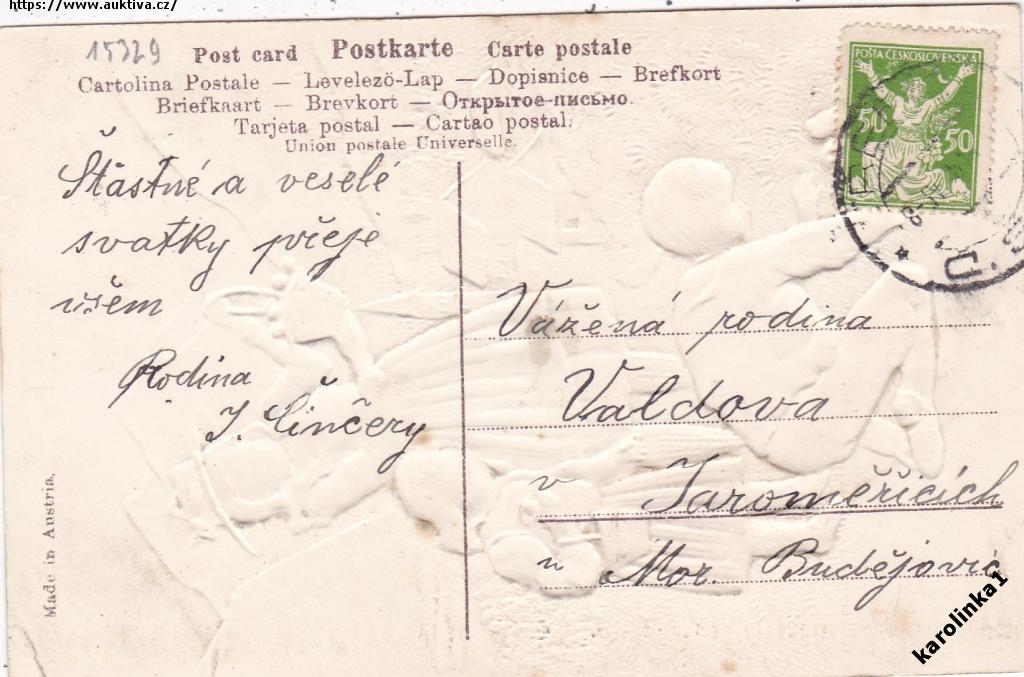 https://www.auktiva.cz/
15329
Post card Postkarte Carte postale
Cartolina Postale — Levelezö-Lap — Dopisnice — Brefkort
Briefkaart — Brevkort — Открытое-письмо.
Tarjeta postal — Cartao postal.
Union postale Universelle.
POŠTA ČESKOSLOVENSKÁ
50 50
Šťastné a veselé
svátky přeje
všem
Rodina
J. Sinčery
Vážená rodina
Valdova
v Jaroměřicích
u Mor. Budějovic
Made in Austria.
karolinka1